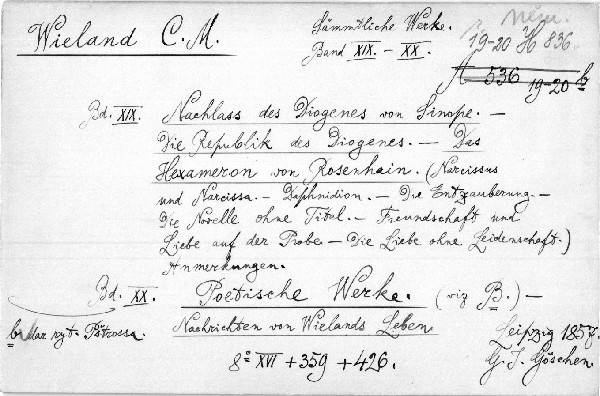 Wieland C. M.
Sämmtliche Werke.
Band XIX. - XX.
Něm.
19-20 H 836.
A 536 19-20 b
Bd. XIX. Nachlass des Diogenes von Sinope. —
Die Republik des Diogenes. — Das
Hexameron von Rosenhain. (Narcissus
und Narcissa. — Daphnidion. — Die Entzauberung. —
Die Novelle ohne Titel. — Freundschaft und
Liebe auf der Probe — Die Liebe ohne Leidenschaft.)
Anmerkungen.
Bd. XX. Poetische Werke. (viz B.) —
Nachrichten von Wielands Leben.
b dar ryt. Pštrossa.
Leipzig 1857.
G. J. Göschen.
8° XVI + 359 + 426.